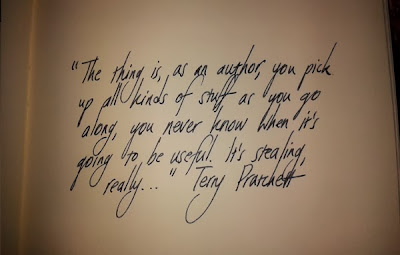 "The thing is, as an author, you pick
up all kinds of stuff as you go
along, you never know when it's
going to be useful. It's stealing,
really..." Terry Pratchett